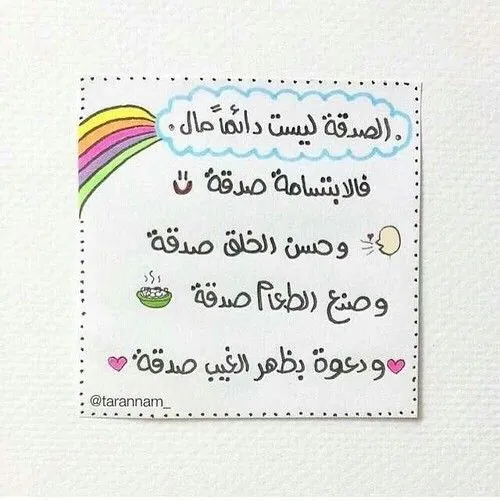 .الصدقة ليست دائماً مال.
فالابتسامة صدقة
وحسن الخلق صدقة
وصنع الطعام صدقة
ودعوة بظهر الغيب صدقة
@tarannam_